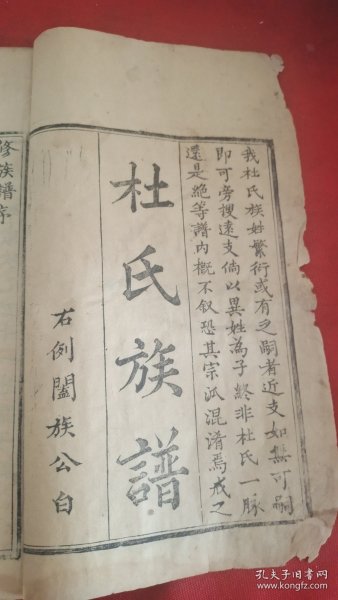 我杜氏族姓繁衍或有乏嗣者近支如無可嗣
即可旁搜遠支倘以異姓為子終非杜氏一脉
還是絶等譜内概不叙恐其宗派混淆焉戒之
杜氏族譜
右例闔族公白
修族譜序
孔夫子旧书网